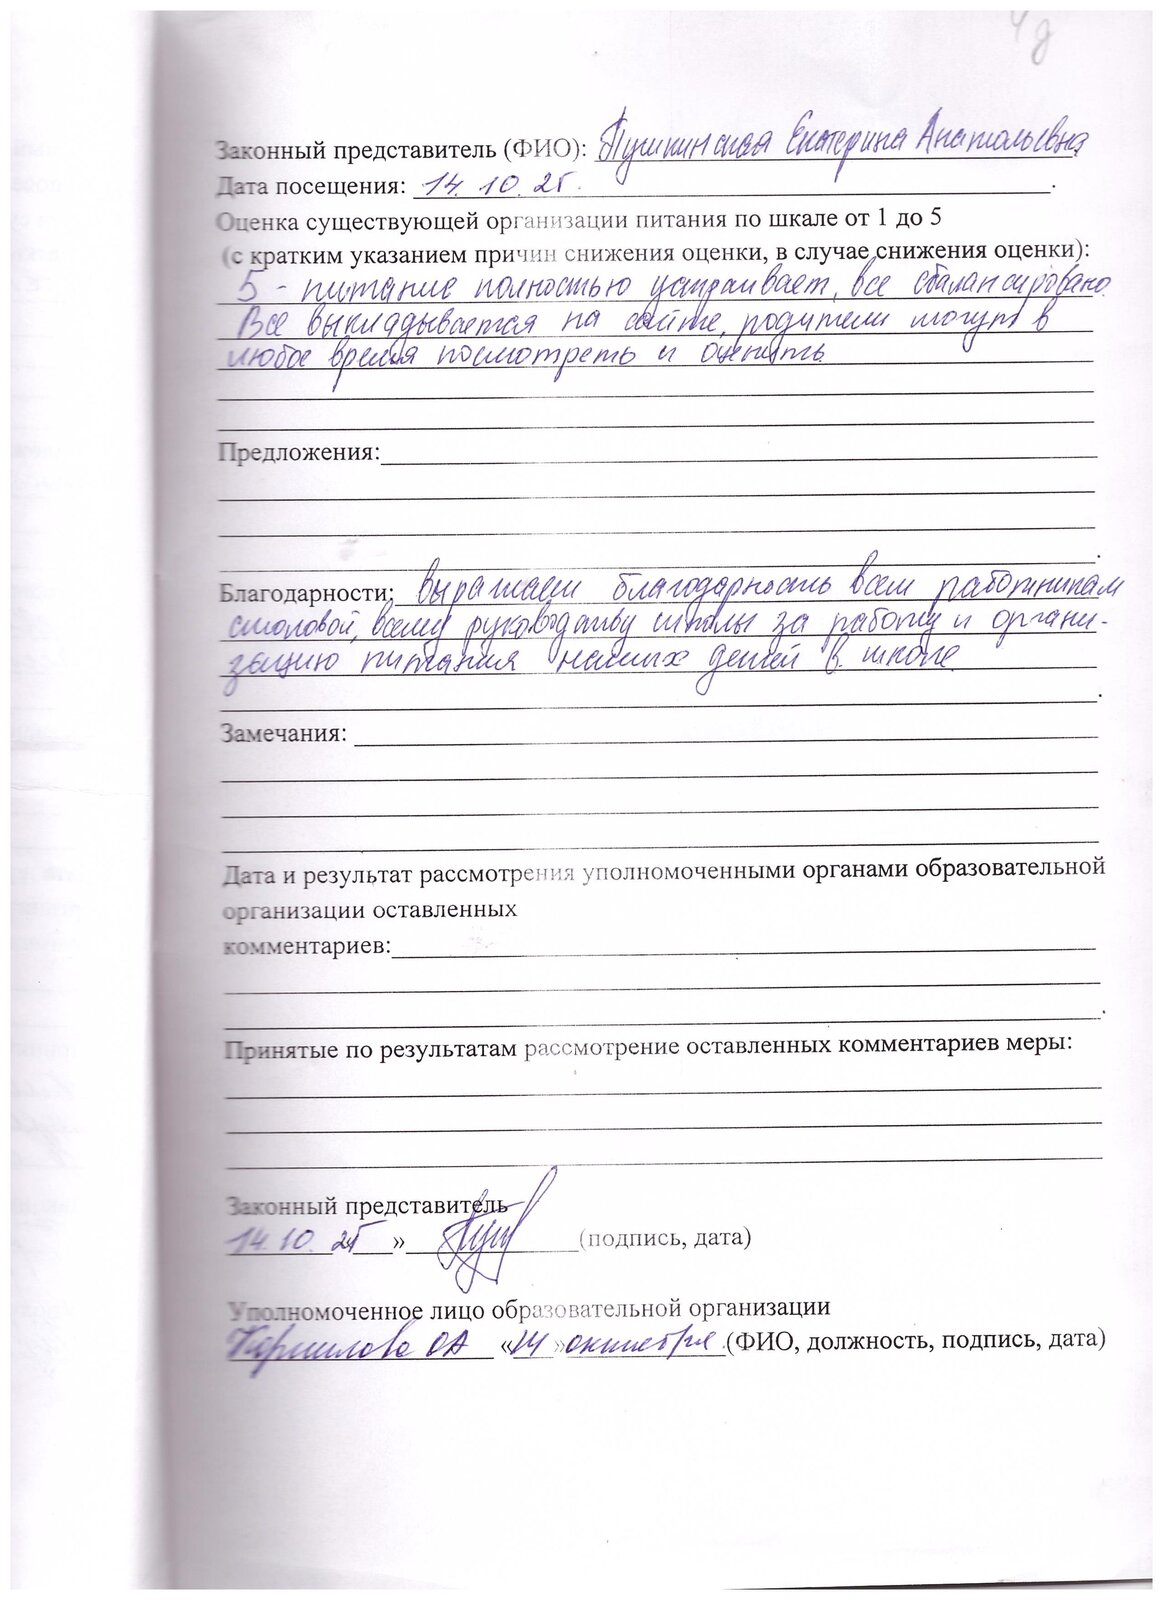 4д
Законный представитель (ФИО): Пушкинская Екатерина Анатольевна
Дата посещения: 14.10.25.
Оценка существующей организации питания по шкале от 1 до 5
(с кратким указанием причин снижения оценки, в случае снижения оценки):
5 - питание полностью устраивает, все сбалансировано.
Все выкладывается на сайте, родители могут в
любое время посмотреть и оценить.
Предложения:
Благодарности: выражаем благодарность всем работникам
столовой, всему руководству школы за работу и органи-
зацию питания наших детей в школе.
Замечания:
Дата и результат рассмотрения уполномоченными органами образовательной
организации оставленных
комментариев:
Принятые по результатам рассмотрение оставленных комментариев меры:
Законный представитель
14.10. 25 » (подпись, дата)
Уполномоченное лицо образовательной организации
Корнилова ОА «14 » октября (ФИО, должность, подпись, дата)